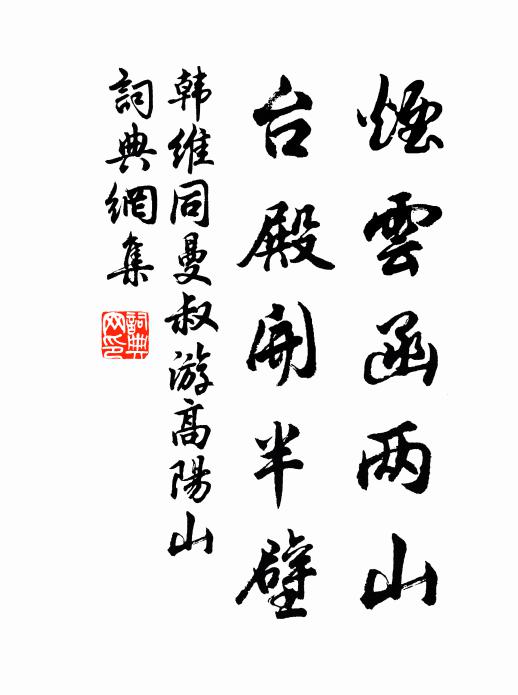 煙雲函两山
台殿開半壁
韩维同曼叔游高陽山
詞典網集
詞典网印